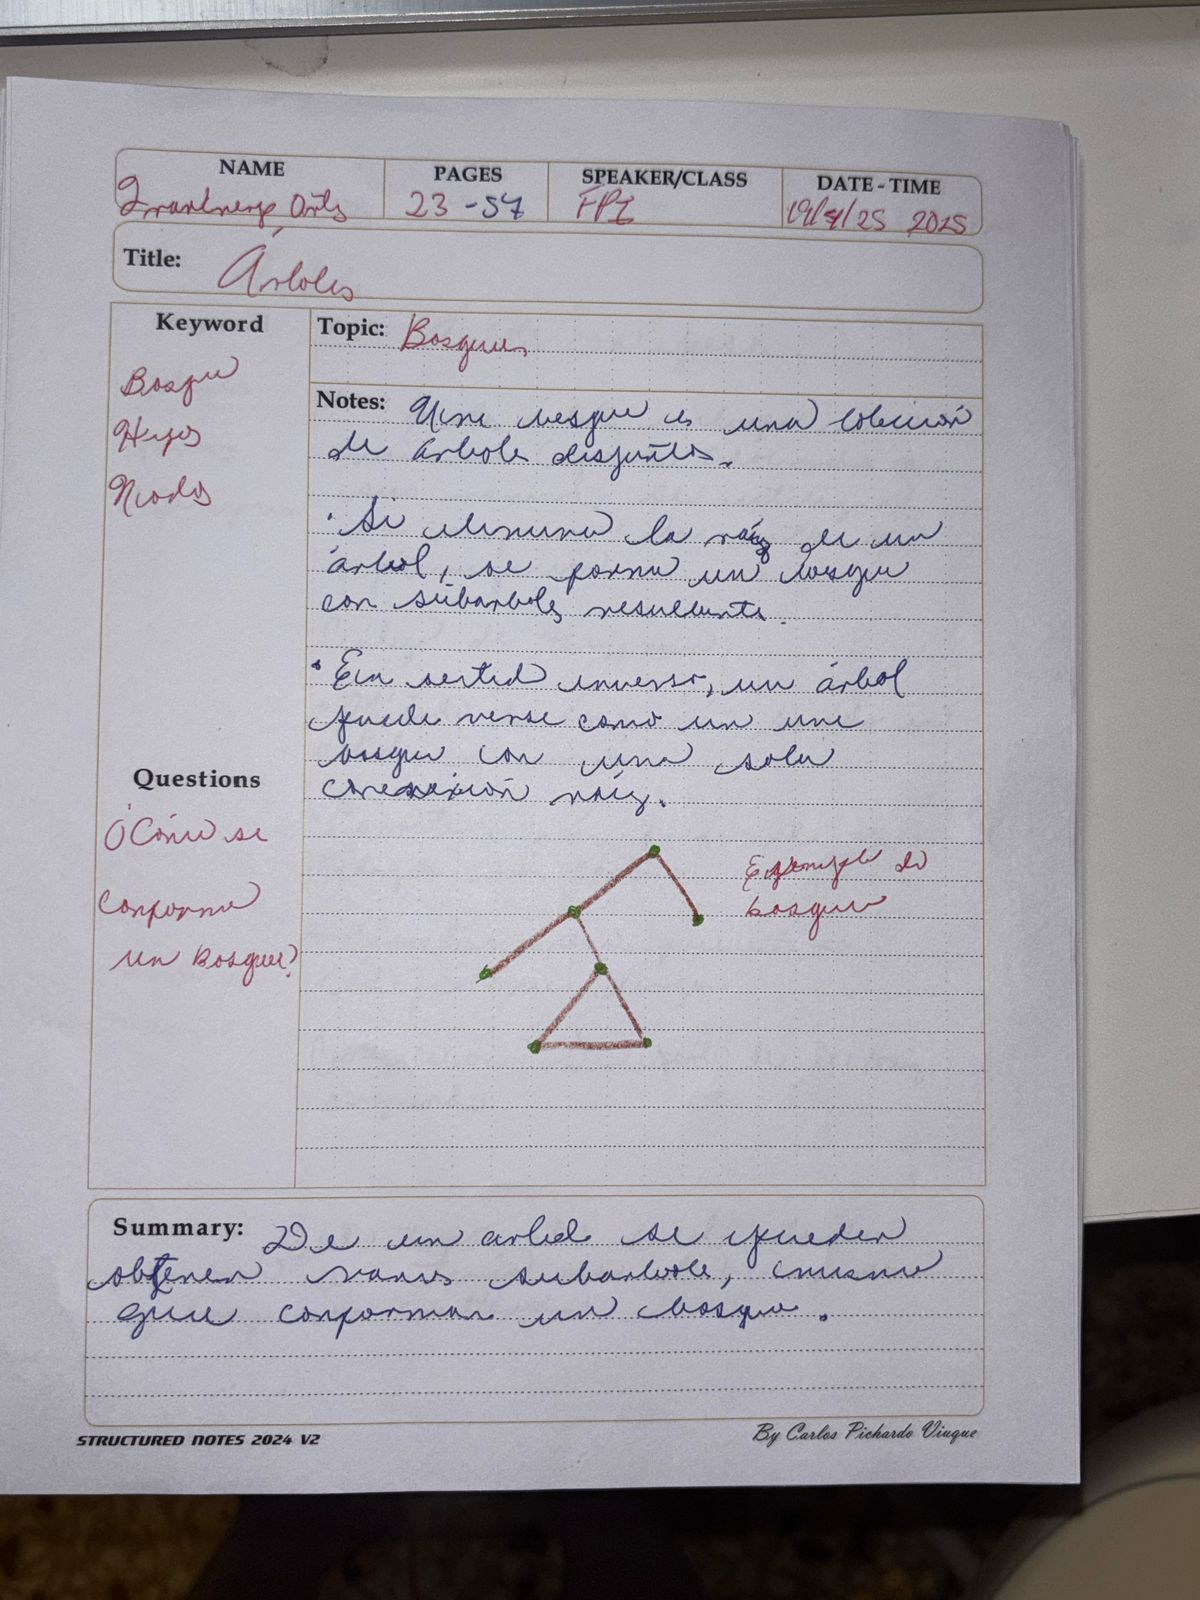 NAME PAGES SPEAKER/CLASS DATE-TIME
23 -57 FPI 19/4/25 2025
Title: Árboles
Keyword
Bosque
Hijos
Nodos
Topic: Bosques
Notes: Une bosque es una colección
de árboles disjuntos.
· Si elimina la raíz de un
árbol, se forma un bosque
con subarboles resultante.
· En sentid inverso, un árbol
puede verse como un une
bosque con una sola
conexión raíz.
Questions
¿Cómo se
conforma
un Bosque?
Ejemplo de
bosque
Summary: De un arbol se pueden
obtener varios subarbole, mismo
que conforman un bosque.
STRUCTURED NOTES 2024 V2
By Carlos Pichardo Viuque